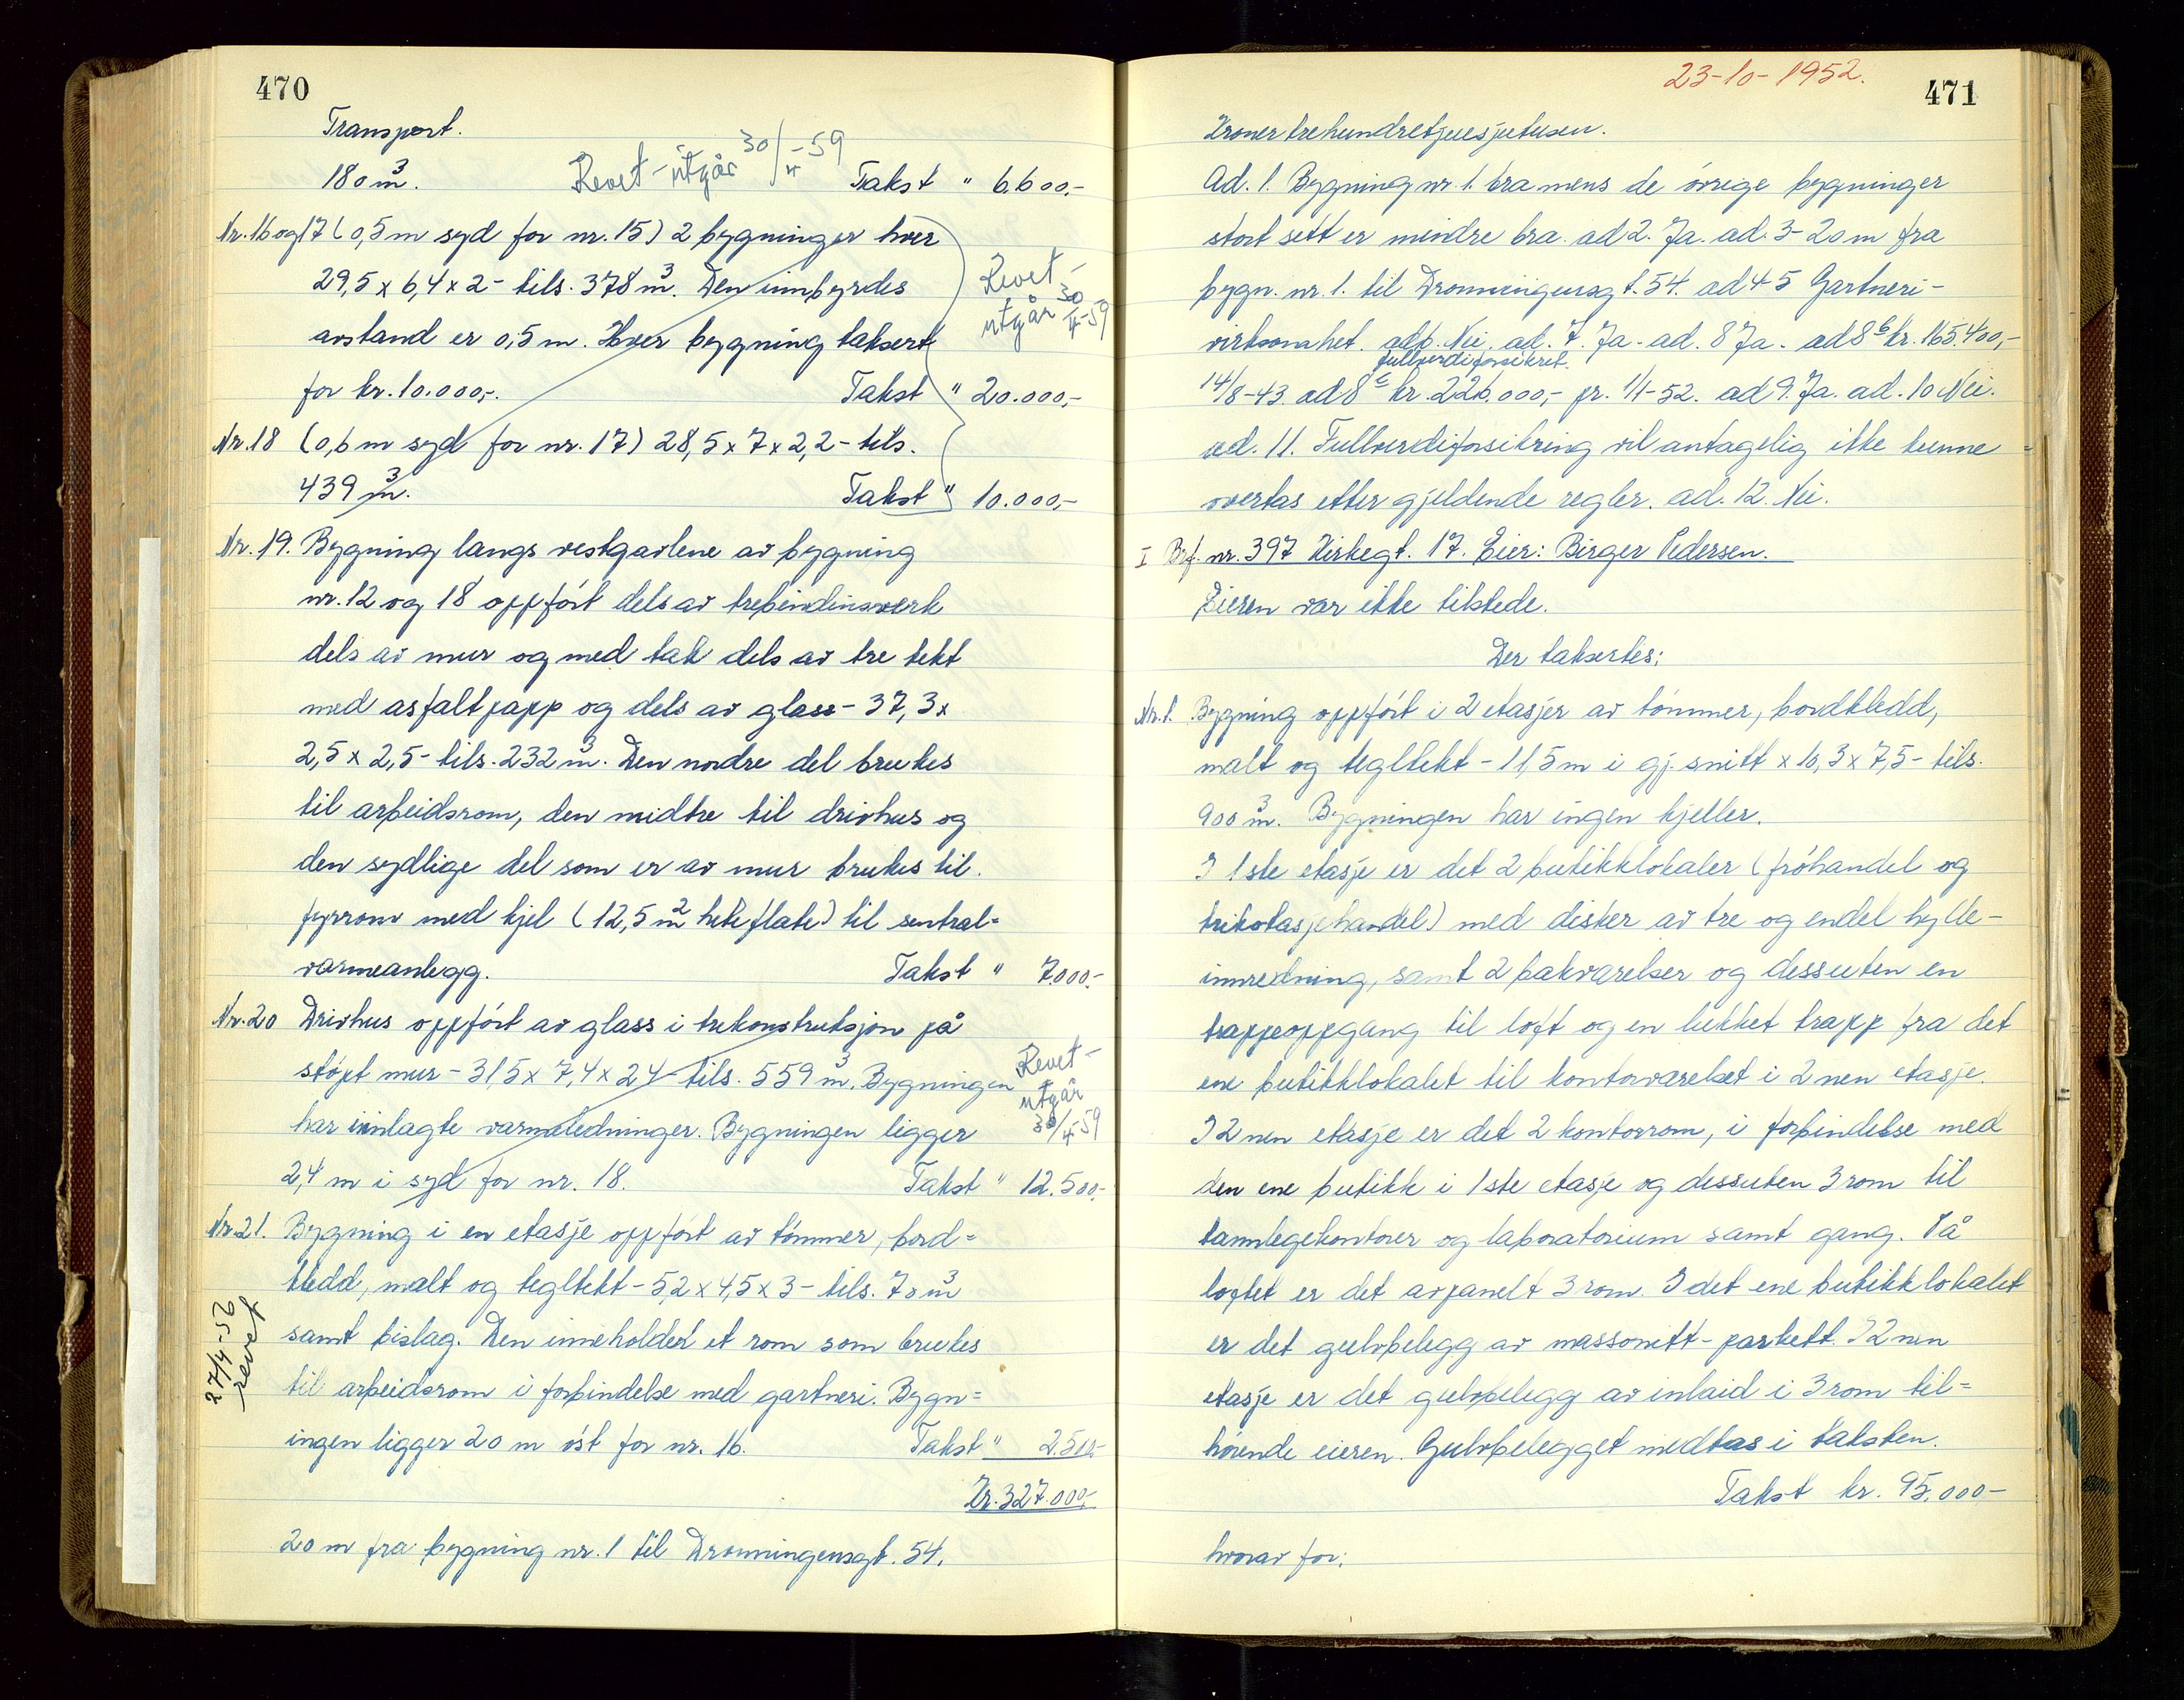 470
Transport.
180 m³. Revet - utgår 30/4-59 Takst " 6.600,-
Nr. 16 og 17 (0,5 m syd for nr. 15) 2 bygninger hver
29,5 x 6,4 x 2 - tils. 378 m³. Den innbyrdes
avstand er 0,5 m. Hver bygning taksert
for kr. 10.000,-. Takst " 20.000,-
Revet -
utgår 30/4-59
Nr. 18 (0,6 m syd for nr. 17) 28,5 x 7 x 2,2 - tils.
439 m³. Takst " 10.000,-
Nr. 19. Bygning langs vestgavlene av bygning
nr. 12 og 18 oppført dels av trebindinsverk
dels av mur og med tak dels av tre tekt
med asfaltpapp og dels av glass - 37,3 x
2,5 x 2,5 - tils. 232 m³. Den nordre del brukes
til arbeidsrom, den midtre til drivhus og
den sydlige del som er av mur brukes til
fyrrom med kjel (12,5 m² heteflate) til sentral=
varmeanlegg. Takst " 7.000,-
Nr. 20 Drivhus oppført av glass i trekonstruksjon på
støpt mur - 31,5 x 7,4 x 2,4 - tils. 559 m³. Bygningen
har innlagte varmeledninger. Bygningen ligger
2,4 m i syd for nr. 18. Takst " 12.500,-
Revet -
utgår
30/4-59
Nr. 21. Bygning i en etasje oppført av tømmer, bord=
kledd, malt og tegltekt - 5,2 x 4,5 x 3 - tils. 70 m³
samt bislag. Den inneholder et rom som brukes
til arbeidsrom i forbindelse med gartneri. Bygn=
ingen ligger 20 m øst for nr. 16. Takst " 2.500,-
27/4-56
revet
Kr. 327.000,-
20 m fra bygning nr. 1 til Dronningensgt. 54.
23-10-1952.
471
Kroner trehundretjuesjutusen.
Ad. 1. Bygning nr. 1. bra mens de øvrige bygninger
stort sett er mindre bra. ad 2. Ja. ad. 3- 20 m fra
bygn. nr. 1. til Dronningensgt. 54. ad 4-5 Gartneri-
virksomhet. ad 6. Nei. ad. 7. Ja. ad. 8 Ja. ad 8 b kr. 165.400,-
fullverdiforsikret.
14/8-43. ad 8 c kr. 226.000,- pr. 1/1-52. ad 9. Ja. ad. 10 Nei.
ad. 11. Fullverdiforsikring vil antagelig ikke kunne
overtas etter gjeldende regler. ad. 12. Nei.
I Brf. nr. 397 Kirkegt. 17. Eier: Birger Pedersen.
Eieren var ikke tilstede.
Der taksertes:
Nr. 1. Bygning oppført i 2 etasjer av tømmer, bordkledd,
malt og tegltekt - 11,5 m i gj. snitt x 10,3 x 7,5 - tils.
900 m³. Bygningen har ingen kjeller.
I 1ste etasje er det 2 butikklokaler (frøhandel og
trikotasjehandel) med disker av tre og endel hylle-
innredning, samt 2 bakværelser og dessuten en
trappeoppgang til loft og en lukket trapp fra det
ene butikklokalet til kontorværelset i 2nen etasje.
I 2nen etasje er det 2 kontorrom, i forbindelse med
den ene butikk i 1ste etasje og dessuten 3 rom til
tannlegekontorer og laboratorium samt gang. På
loftet er det avpanelt 3 rom. I det ene butikklokalet
er det gulvbelegg av massonitt-parkett. I 2nen
etasje er det gulvbelegg av inlaid i 3 rom til=
hørende eieren. Gulvbelegget medtas i taksten.
Takst kr. 95.000-
hvorav for: